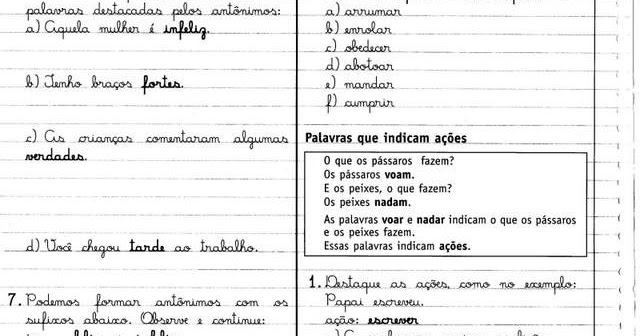 palavras destacadas pelos antônimos:
a) Aquela mulher é infeliz.
b) Tenho braços fortes.
c) As crianças comentaram algumas
verdades.
d) Você chegou tarde ao trabalho.
7. Podemos formar antônimos com os
sufixos abaixo. Observe e continue:
a) arrumar
b) enrolar
c) obedecer
d) abotoar
e) mandar
f) cumprir
Palavras que indicam ações
O que os pássaros fazem?
Os pássaros voam.
E os peixes, o que fazem?
Os peixes nadam.
As palavras voar e nadar indicam o que os pássaros
e os peixes fazem.
Essas palavras indicam ações.
1. Destaque as ações, como no exemplo:
Papai escreveu.
ação: escrever